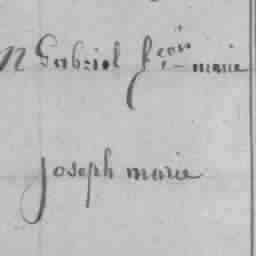 n Gabriel fçois marie
joseph marie